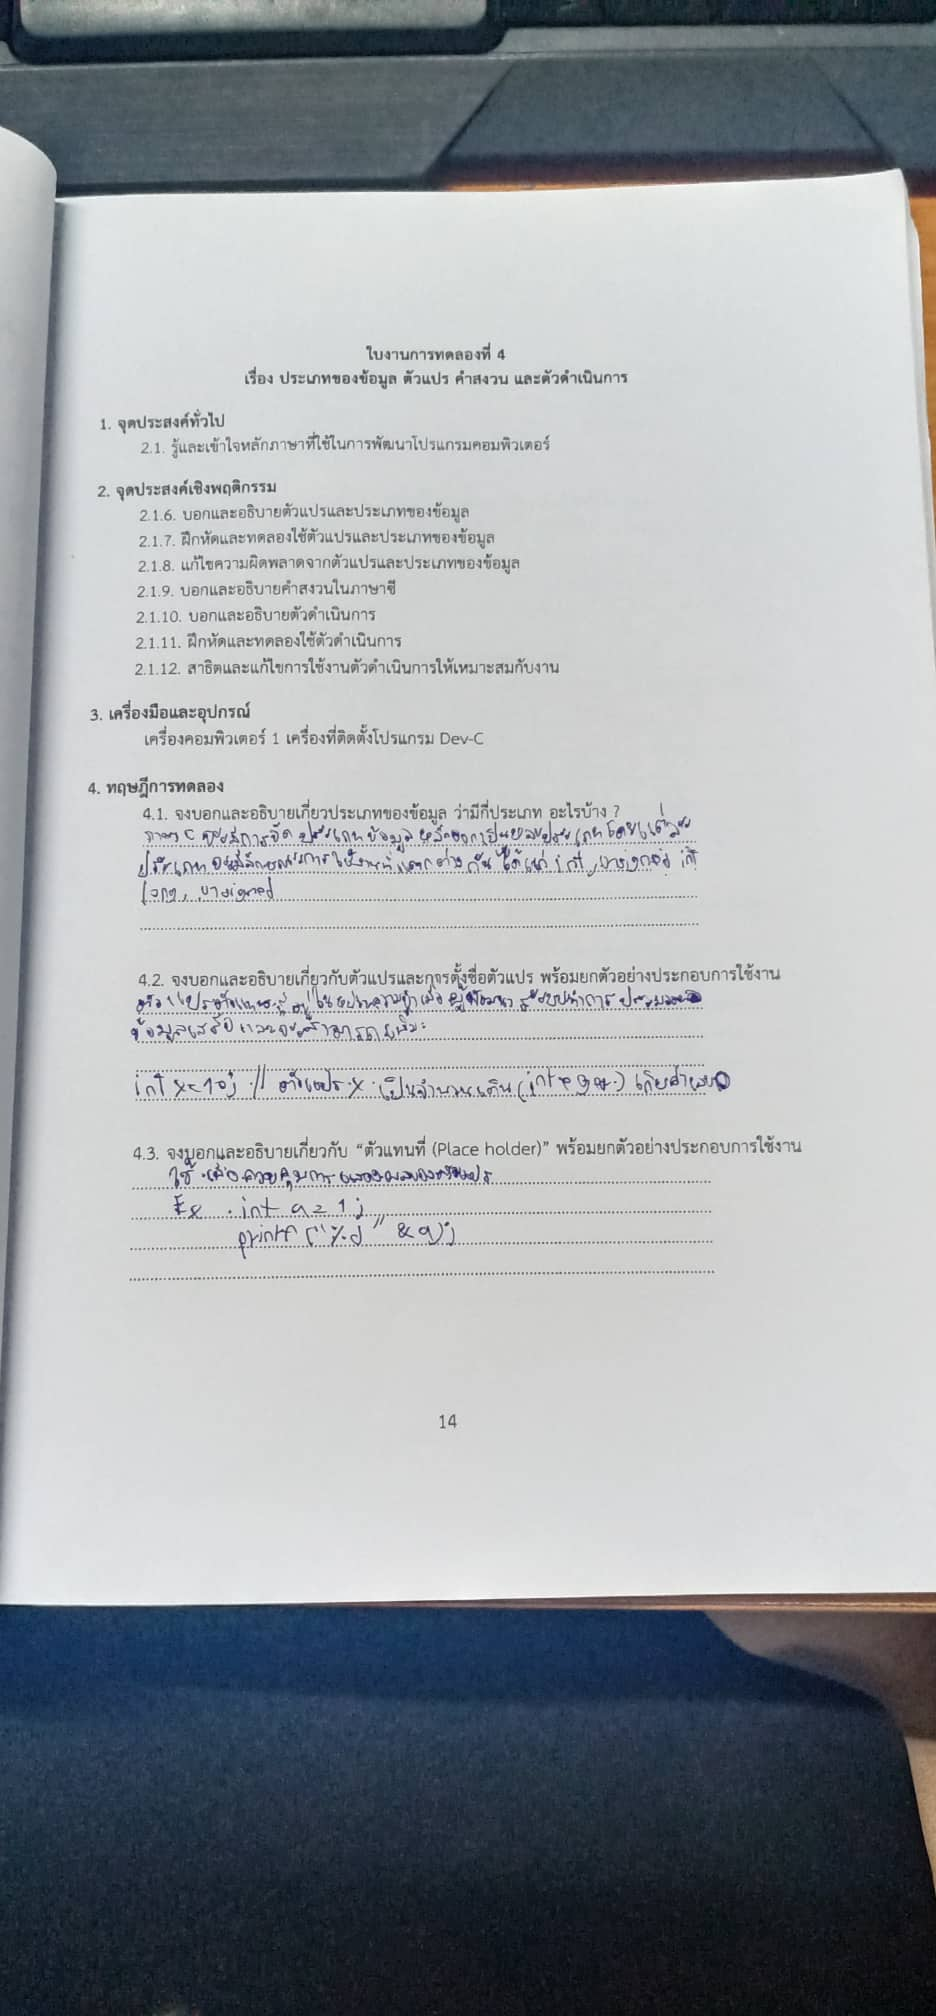 ใบงานการทดลองที่ 4
เรื่อง ประเภทของข้อมูล ตัวแปร คำสงวน และตัวดำเนินการ
1. จุดประสงค์ทั่วไป
2.1. รู้และเข้าใจหลักภาษาที่ใช้ในการพัฒนาโปรแกรมคอมพิวเตอร์
2. จุดประสงค์เชิงพฤติกรรม
2.1.6. บอกและอธิบายตัวแปรและประเภทของข้อมูล
2.1.7. ฝึกหัดและทดลองใช้ตัวแปรและประเภทของข้อมูล
2.1.8. แก้ไขความผิดพลาดจากตัวแปรและประเภทของข้อมูล
2.1.9. บอกและอธิบายคำสงวนในภาษาซี
2.1.10. บอกและอธิบายตัวดำเนินการ
2.1.11. ฝึกหัดและทดลองใช้ตัวดำเนินการ
2.1.12. สาธิตและแก้ไขการใช้งานตัวดำเนินการให้เหมาะสมกับงาน
3. เครื่องมือและอุปกรณ์
เครื่องคอมพิวเตอร์ 1 เครื่องที่ติดตั้งโปรแกรม Dev-C
4. ทฤษฎีการทดลอง
4.1. จงบอกและอธิบายเกี่ยวประเภทของข้อมูล ว่ามีกี่ประเภท อะไรบ้าง ?
ภาษา C จะมีการจัดประเภทข้อมูลหลักออกเป็นหลายประเภทโดยแต่ละ
ประเภทจะมีลักษณะการใช้งานที่แตกต่างกัน ได้แก่ int, unsigned int
long, unsigned
4.2. จงบอกและอธิบายเกี่ยวกับตัวแปรและการตั้งชื่อตัวแปร พร้อมยกตัวอย่างประกอบการใช้งาน
ข้อมูลเสร็จ
int x=10; // ตัวแปร x เป็นจำนวนเต็ม (integer)
4.3. จงบอกและอธิบายเกี่ยวกับ “ตัวแทนที่ (Place holder)” พร้อมยกตัวอย่างประกอบการใช้งาน
ใช้เพื่อควบคุมการแสดงผลของตัวแปร
Ex . int a = 1;
printf ("%d" &a);
14